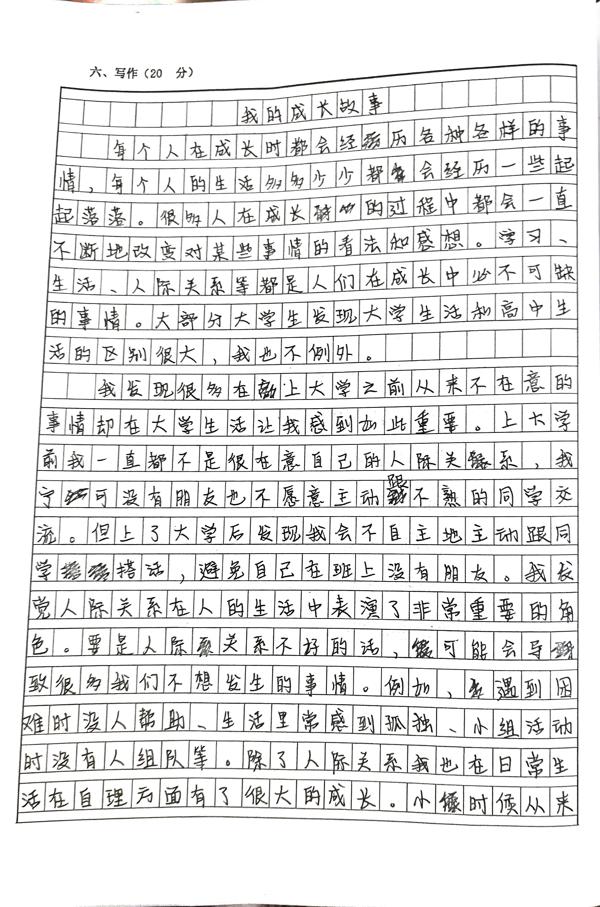 六、写作（20 分）
我的成长故事
每个人在成长时都会经历各种各样的事
情，每个人的生活多多少少都会经历一些起
起落落。很多人在成长的过程中都会一直
不断地改变对某些事情的看法和感想。学习、
生活、人际关系等都是人们在成长中必不可缺
的事情。大部分大学生发现大学生活和高中生
活的区别很大，我也不例外。
我发现很多在上大学之前从来不在意的
事情却在大学生活让我感到如此重要。上大学
前我一直都不是很在意自己的人际关系，我
宁可没有朋友也不愿意主动跟不熟的同学交
流。但上了大学后发现我会不自主地主动跟同
学搭话，避免自己在班上没有朋友。我长
觉人际关系在人的生活中表演了非常重要的角
色。要是人际关系不好的话，可能会导
致很多我们不想发生的事情。例如，遇到困
难时没人帮助、生活里常感到孤独、小组活动
时没有人组队等。除了人际关系我也在日常生
活在自理方面有了很大的成长。小时候从来